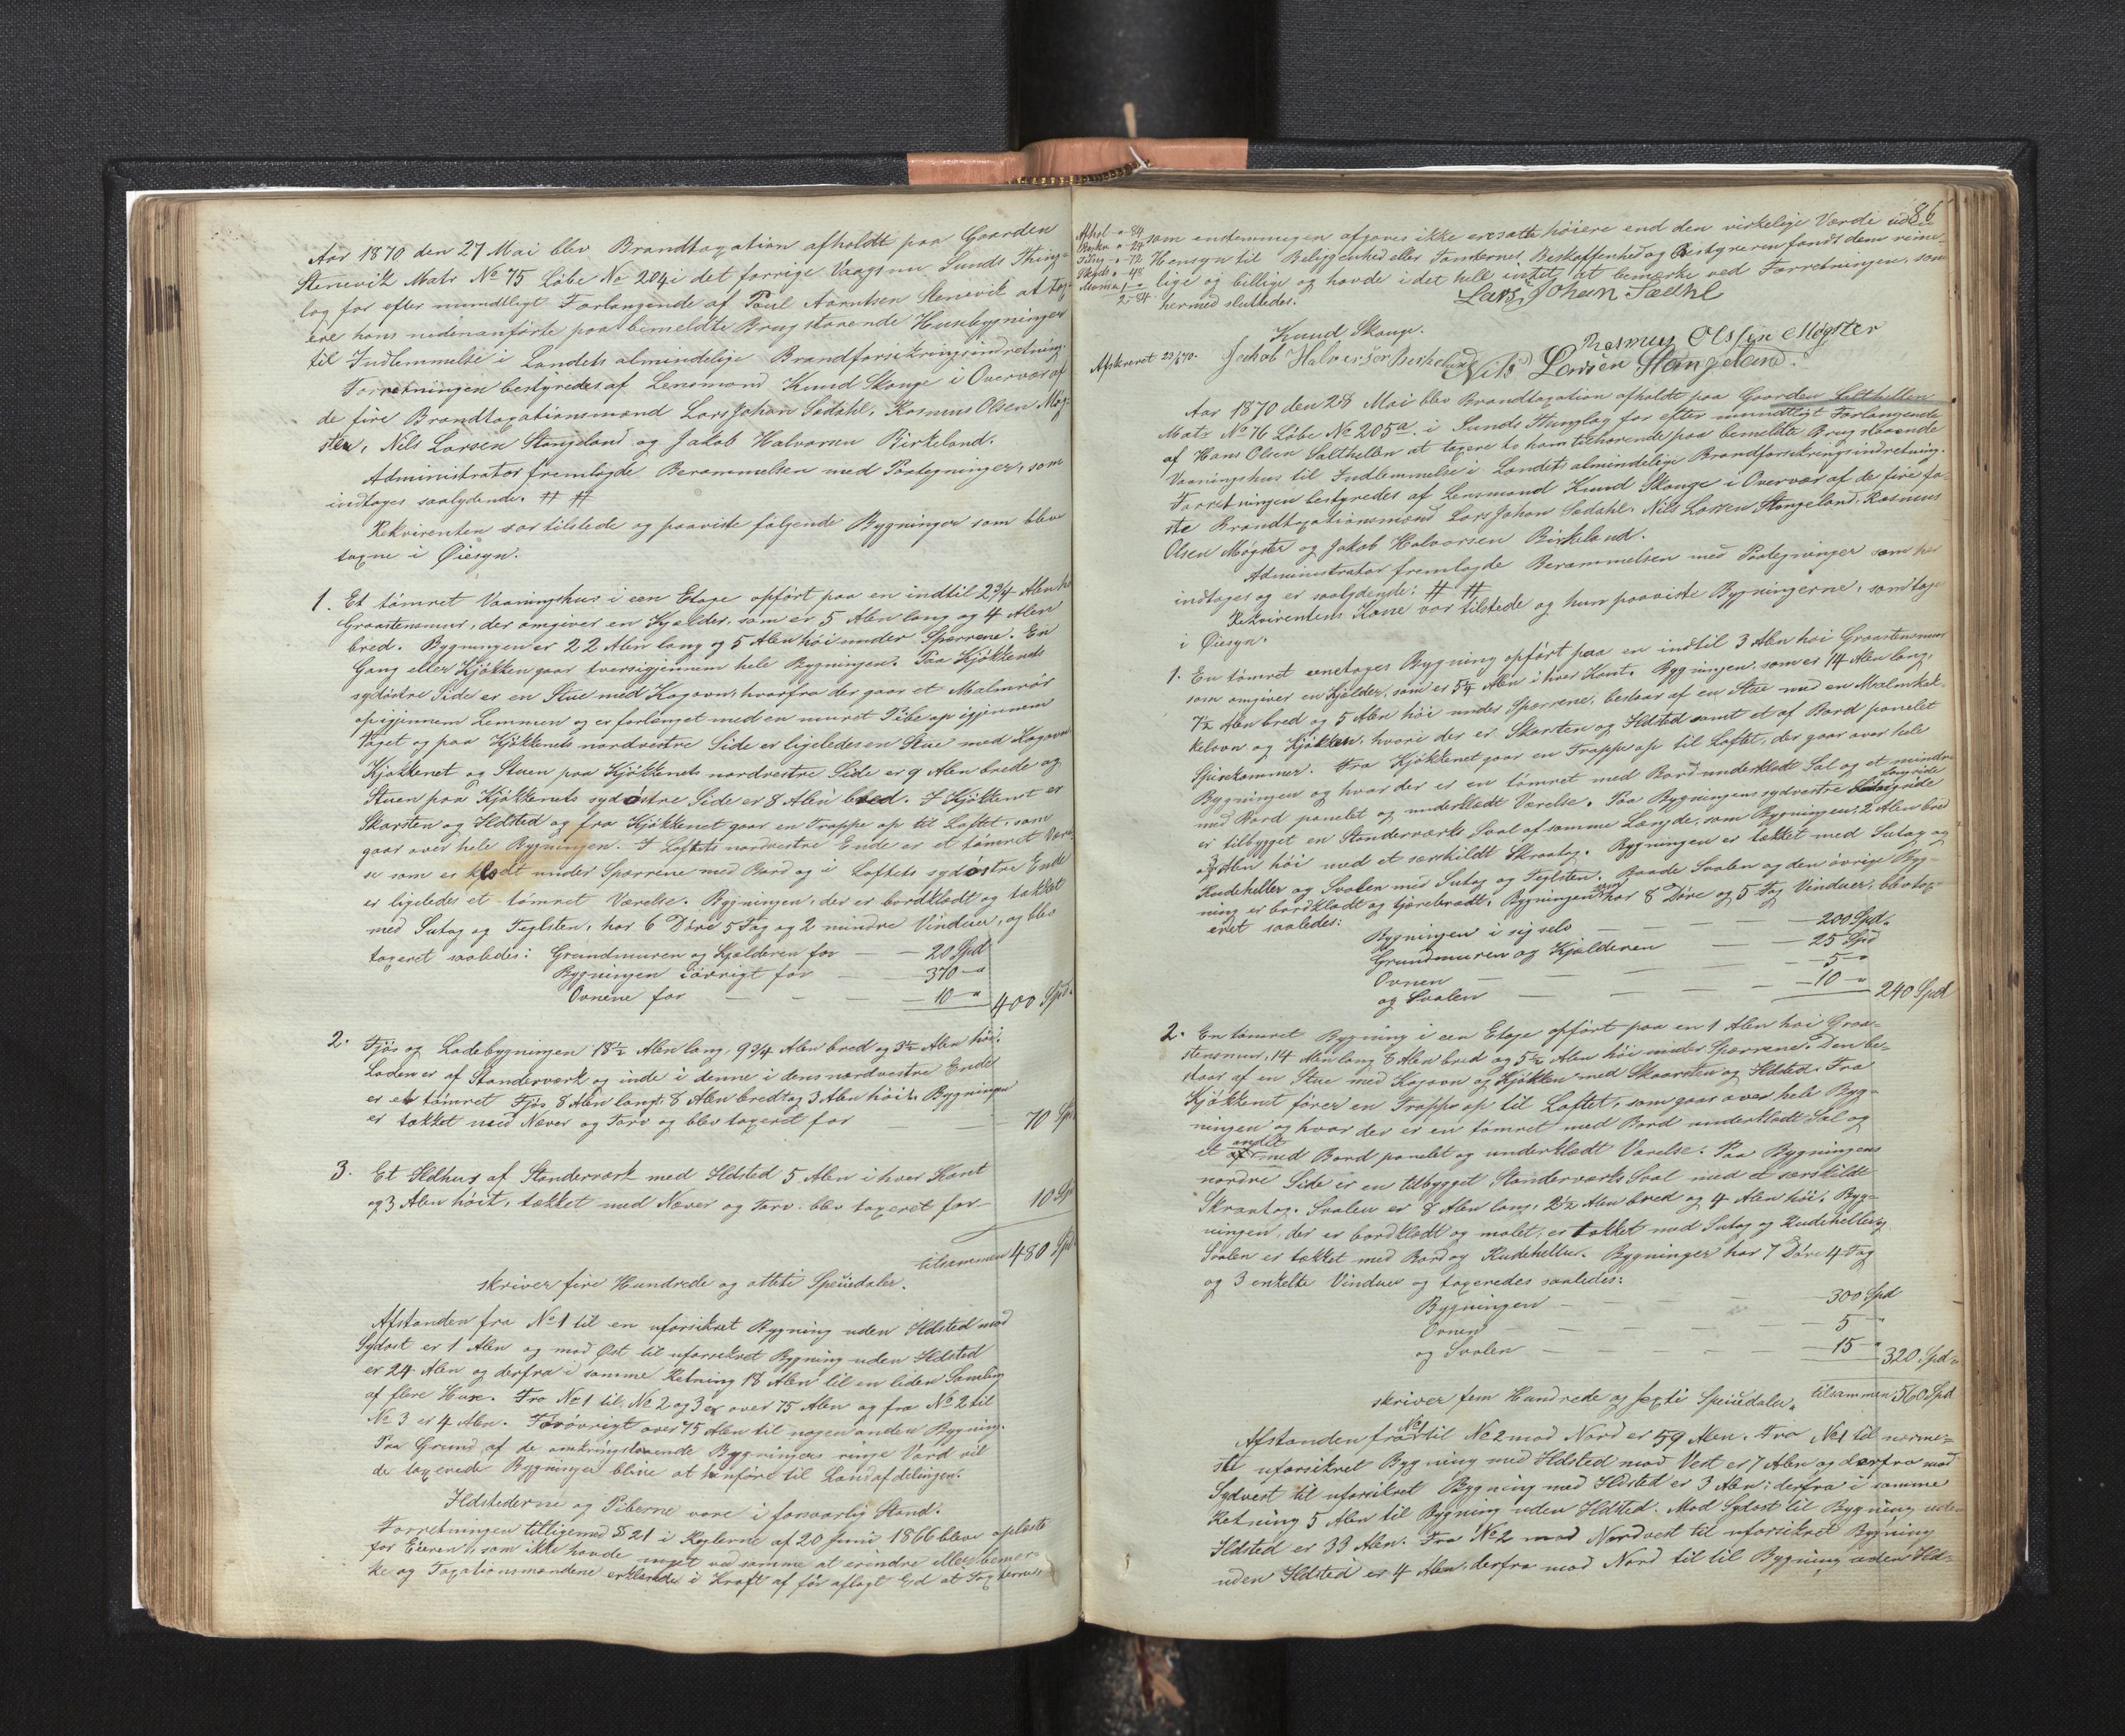 Aar 1870 den 27 Mai blev Brandtaxation afholdt paa Gaarden
Stenevik Matr No 75 Löbe No 204 i det forrige Vaags nu Sunds Thing-
lag for efter mundtligt Forlangende af Poul Aarntsen Stenevik at tax-
ere hans nedenanførte paa bemeldte Brug staaende Husebygninger
til Indlemmelse i Landets almindelige Brandforsikringsindretning.
Forretningen bestyredes af Lensmand Knud Skauge i Overvær af
de fire Brandtaxationsmænd Lars Johan Sædahl, Rasmus Olsen Møg-
ster, Nils Larsen Stangeland og Jakob Halvorsen Birkeland.
Administrator fremlagde Berammelsen med Paategninger, som
indtages saalydende. # #
Rekvirenten var tilstede og paaviste følgende Bygninger som blev
tagne i Øiesyn.
1. Et tömret Vaaningshus i een Etage opfört paa en indtil 2 3/4 Alen hö
Graastensmur, der omgiver en Kjælder, som er 5 Alen lang og 4 Alen
bred. Bygningen er 22 Alen lang og 5 Alen höi under Spærrene. En
Gang eller Kjökken gaar tversigjennem hele Bygningen. Paa Kjökkenets
sydöstre Side er en Stue med Kogovn, hvorfra der gaar et Malmrör
opigjennem Lemmen og er forlænget med en muret Pibe op igjennem
Taget og paa Kjökkenets nordvestre Side er ligeledes en Stue med Kogovn
Kjökkenet og Stuen paa Kjökkenets nordvestre Side er 9 Alen brede og
Stuen paa Kjökkenets sydöstre Side er 8 Alen bred. I Kjökkenet er
Skorsten og Ildsted og fra Kjökkenet gaar en Trappe op til Loftet, som
gaar over hele Bygningen. I Loftets nordvestre Ende er et tömret Være
se som er klædt under Spærrene med Bord og i Loftets sydöstre Ende
er ligeledes et tömret Værelse. Bygningen, der er bordklædt og tækket
med Sutag og Teglsten, har 6 Döre 5 Fag og 2 mindre Vinduer, og blev
taxeret saaledes: Grundmuren og Kjælderen for — — 20 Spd
Bygningen iövrigt for — — 370 — "
Ovnene for — — — — 10 — " 400 Spd.
2. Fjös og Ladebygningen 18 1/2 Alen lang, 9 3/4 Alen bred og 3 1/2 Alen höi.
Laden er af Standerværk og inde i denne i dens nordvestre Ende
er et tömret Fjös 8 Alen langt 8 Alen bredt og 3 Alen höit. Bygningen
er tækket med Næver og Torv og blev taxeret for — — 70 Spd
3. Et Ildhus af Standerværk med Ildsted 5 Alen i hver Kant
og 3 Alen höit, tækket med Næver og Torv blev taxeret for — 10 Spd
tilsammen 480 Spd
skriver fire Hundrede og otteti Speciedaler.
Afstanden fra No 1 til en uforsikret Bygning uden Ildsted mod
Sydost er 1 Alen og mod Öst til uforsikret Bygning uden Ildsted
er 24 Alen og derfra i samme Retning 18 Alen til en liden Samling
af flere Huse. Fra No 1 til No 2 og 3 er over 75 Alen og fra No 2 til
No 3 er 4 Alen. Forövrigt over 75 Alen til nogen anden Bygning.
Paa Grund af de omkringstaaende Bygningers ringe Værd vil
de taxerede Bygninger blive at henföre til Landafdelingen.
Ildstederne og Piberne vare i forsvarlig Stand.
Forretningen tilligemed § 21 i Reglerne af 20 Juni 1866 blev oplæste
for Eieren, som ikke havde noget ved samme at erindre eller bemær-
ke og Taxationsmændene erklærede i Kraft af för aflagt Ed at Taxterne,
86
som enstemmigen afgaves ikke ere satte höiere end den virkelige Værdi ud
Hensyn til Beliggenhed eller Tomternes Beskaffenhed og Bestyreren fandt dem rime-
lige og billige og havde i det hele intet at bemærke ved Forretningen, som
hermed sluttedes.
2-84
Lars Johan Sædhl
Knud Skauge.
Rasmus Olssøn Møgster
Afskrevet 23/6 70. Jackob Halversön Berkeland Nils Larsen Stangeland.
Aar 1870 den 28 Mai blev Brandtaxation afholdt paa Gaarden Salthellen
Matr No 76 Löbe No 205a i Sunds Thinglag for efter mundtligt Forlangende
af Hans Olsen Salthellen at taxere to ham tilhörende paa bemeldte Brug staaende
Vaaningshus til Indlemmelse i Landets almindelige Brandforsikringsindretning.
Forretningen bestyredes af Lensmand Knud Skauge i Overvær af de fire fa-
ste Brandtaxationsmænd Lars Johan Sædahl, Nils Larsen Stangeland, Rasmus
Olsen Møgster og Jakob Halvorsen Birkeland.
Administrator fremlagde Berammelsen med Paategninger som her
indtages og er saalydende: # #
Rekvirentens Kone var tilstede og hun paaviste Bygningerne, som toges
i Øiesyn.
1. En tömret eenetages Bygning opfört paa en indtil 3 Alen höi Graastensmur
som omgiver en Kjelder, som er 5 1/2 Alen i hver Kant. Bygningen, som er 14 Alen lang,
7 1/2 Alen bred og 5 Alen höi under Spærrene, bestaar af en Stue med en Malmkak-
kelovn og Kjökken, hvori der er Skorsten og Ildsted samt et af Bord panelet
Spisekammer. Fra Kjökkenet gaar en Trappe op til Loftet, der gaar over hele
Bygningen og hvor der er en tömret med Bord underklædt Sal og et mindre
med Bord panelet og underklædt Værelse. Paa Bygningens sydvestre Langside
er tilbygget en Standerværks Sval af samme Længde, som Bygningen, 2 Alen bred
og 3 Alen höi med et særskildt Skraatag. Bygningen er tækket med Sutag og
Rudeheller og Svalen med Sutag og Teglsten. Baade Svalen og den övrige Byg-
ning er bordklædt og tjærebrædt. Bygningen som har 8 Döre og 5 Fag Vinduer, blev tax-
eret saaledes:
Bygningen i sig selv — — — 200 Spd.
Grundmuren og Kjælderen — — 25 Spd
Ovnen — — — — 5 — "
og Svalen — — — — 10 — " 240 Spd
2. En tömret Bygning i een Etage opfört paa en 1 Alen höi Graa-
stensmur, 14 Alen lang 8 Alen bred og 5 1/2 Alen höi under Spærrene. Den be-
staar af en Stue med Kogovn og Kjökken med Skaarsten og Ildsted. Fra
Kjökkenet förer en Trappe op til Loftet, som gaar over hele Byg-
ningen og hvor der er en tömret med Bord underklædt Sal og
et andet med Bord panelet og underklædt Værelse. Paa Bygningens
nordre Side er en tilbygget Standerværks Sval med et særskildt
Skraatag. Svalen er 8 Alen lang, 2 1/2 Alen bred og 4 Alen höi. Byg-
ningen, der er bordklædt og malet, er tækket med Sutag og Rudeheller og
Svalen er tækket med Bord og Rudeheller. Bygningen har 7 Döre 4 Fag
og 3 enkelte Vinduer og taxeredes saaledes:
Bygningen — — — — 300 Spd
Ovnen — — — — 5 "
og Svalen — — — — 15 — " 320 Spd
tilsammen 560 Spd
skriver fem Hundrede og sexti Speciedaler.
Afstanden fra No 1 til No 2 mod Nord er 59 Alen. Fra No 1 til nærme-
ste uforsikret Bygning med Ildsted mod Vest er 7 Alen og derfra mod
Sydvest til uforsikret Bygning med Ildsted er 3 Alen; derfra i samme
Retning 5 Alen til Bygning uden Ildsted. Mod Sydost til Bygning uden
Ildsted er 33 Alen. Fra No 2 mod Nordvest til uforsikret Bygning
uden Ildsted er 4 Alen, derfra mod Nord til til Bygning uden Ild-